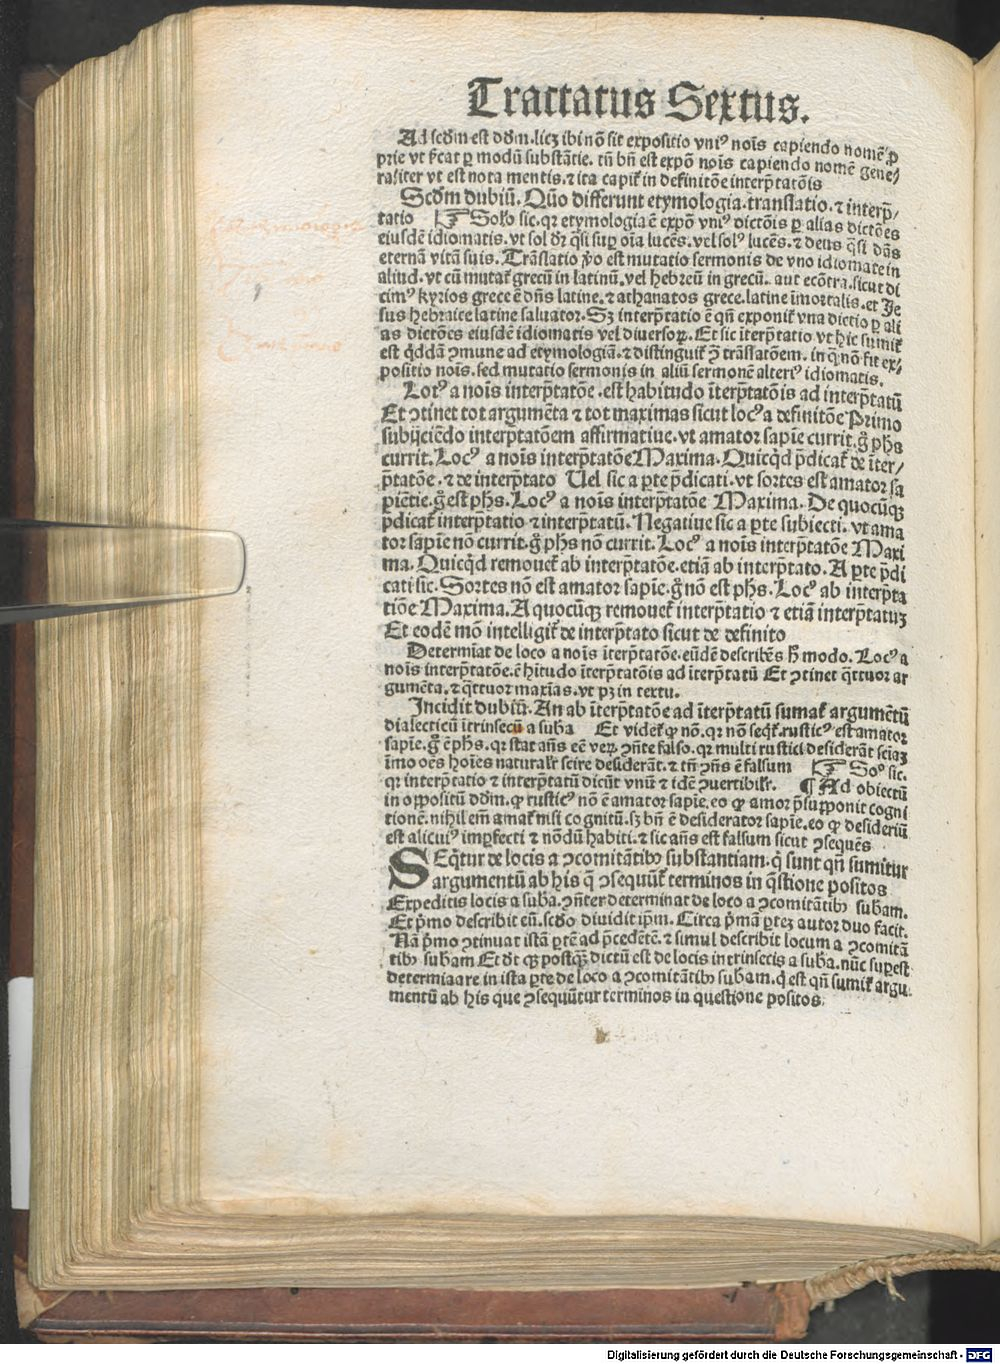 Tractatus Sextus.
Ad scḋm est dḋm. licꝫ ibi nō sit expositio vniꝰ noīs capiendo nomē ꝓ
prie vt ẜcat ꝑ modū substātie. tn̄ bn̄ est expō noīs capiendo nomē gene⸗
raliter vt est nota mentis. ⁊ ita capit̉ in definitōe interp̄tatōis
Scḋm dubiū. Quō differunt etymologia. translatio. ⁊ interp̄⸗
tatio ☞ Solō sic. qꝛ etymologia ē expō vniꝰ dictōis ꝑ alias dictōes
eiusdē idiomatis. vt sol dr̄ q̄si suꝑ oīa lucēs. vel solꝰ lucēs. ⁊ deus q̄si dās
eternā vitā suis. Trāslatio ꝟo est mutatio sermonis de vno idiomate in
aliud. vt cū mutat̉ grecū in latinū. vel hebreū in grecū. aut ecōtra. sicut di
cimꝰ kyrios grece ē dn̄s latine. ⁊ athanatos grece. latine īmortalis. et Je
sus hebraice latine saluator. Sꝫ interp̄tatio ē qn̄ exponit̉ vna dictio ꝑ ali
as dictōes eiusdē idiomatis vel diuersoꝝ. Et sic īterp̄tatio vt hic sumit̉
est q̇ddā ꝯmune ad etymologiā. ⁊ distinguit̉ ꝯ̄ trāslatōem. in q̄ nō fit ex⸗
positio noīs. sed mutatio sermonis in aliū sermonē alteriꝰ idiomatis.
Locꝰ a noīs interp̄tatōe. est habitudo īterp̄tatōis ad interp̄tatū
Et ꝯtinet tot argumēta ⁊ tot maximas sicut locꝰ a definitōe Primo
subijciēdo interp̄tatōem affirmatiue. vt amator sapīe currit. g̊ ph̄s
currit. Locꝰ a noīs interp̄tatōe Maxima. Quicq̇d p̄dicat̉ de īter⸗
p̄tatōe. ⁊ de interp̄tato Uel sic a ꝑte p̄dicati. vt sortes est amator sa
pīetie. g̊ est ph̄s. Locꝰ a noīs interp̄tatōe Maxima. De quocūqꝫ
p̄dicat̉ interp̄tatio ⁊ interp̄tatū. Negatiue sic a ꝑte subiecti. vt ama
tor sapīe nō currit. g̊ ph̄s nō currit. Locꝰ a noīs interp̄tatōe Maxi
ma. Quicq̇d remouet̉ ab interp̄tatōe. etiā ab interp̄tato. A ꝑte p̄di
cati sic. Sortes nō est amator sapīe. g̊ nō est ph̄s. Locꝰ ab interp̄ta
tiōe Maxima. A quocūqꝫ remouet̉ interp̄tatio ⁊ etiā interp̄tatuꝫ
Et eodē mō intelligit̉ de interp̄tato sicut de definito
Determīat de loco a noīs īterp̄tatōe. eūdē describēs h̄ modo. Locꝰ a
noīs interp̄tatōe. ē hītudo īterp̄tatōis ad īterp̄tatū Et ꝯtinet q̄ttuor ar
gumēta. ⁊ q̄ttuor maxīas. vt pꝫ in textu.
Incidit dubiū. An ab īterp̄tatōe ad īterp̄tatū sumat̉ argumētū
dialecticū ītrinsecū a suba Et videt̉ ꝙ nō. qꝛ nō seq̇t̉. rusticꝰ est amator
sapīe. g̊ ē ph̄s. qꝛ stat an̄s eē veꝝ ꝯn̄te falso. qꝛ multi rustici desiderāt sciaꝫ
īmo oēs hoīes naturalr̄ scire desiderāt. ⁊ tn̄ ꝯn̄s ē falsum ☞ Soꝰ sic.
qꝛ interp̄tatio ⁊ interp̄tatū dicūt vnū ⁊ idē ꝯuertibilr̄. ¶ Ad obiectū
in oppositū dḋm. ꝙ rusticꝰ nō ē amator sapīe. eo ꝙ amor p̄supponit cogni
tionē. nihil em̄ amat̉ nisi cognitū. sꝫ bn̄ ē desiderator sapīe. eo ꝙ desideriū
est alicuiꝰ imꝑfecti ⁊ nōdū habiti. ⁊ sic an̄s est falsum sicut ꝯsequēs
SEq̇tur de locis a ꝯcomitātibꝫ substantiam. q̇ sunt qn̄ sumitur
argumentū ab his q̄ ꝯsequūt̉ terminos in q̄stione positos
Expeditis locis a suba. ꝯn̄ter determinat de loco a ꝯcomitātibꝫ subam.
Et p̄mo describit eū. scḋo diuidit ip̄m. Circa p̄mā ꝑteꝫ autor duo facit.
Nā p̄mo ꝯtinuat istā ꝑtē ad p̄cedētē. ⁊ simul describit locum a ꝯcomitā
tibꝫ subam Et dt̄ ꝙ postq̄ꝫ dictū est de locis intrinsecis a suba. nūc suꝑest
determīare in ista ꝑte de loco a ꝯcomitātibꝫ subam. q̇ est qn̄ sumit̉ argu⸗
mentū ab his que ꝯsequūtur terminos in questione positos.
Digitalisierung gefördert durch die Deutsche Forschungsgemeinschaft - DFG